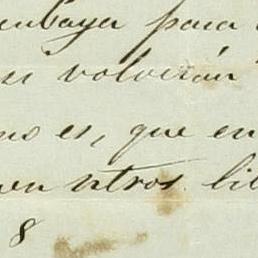 para
volverán
no es, que en
en otros lib
8